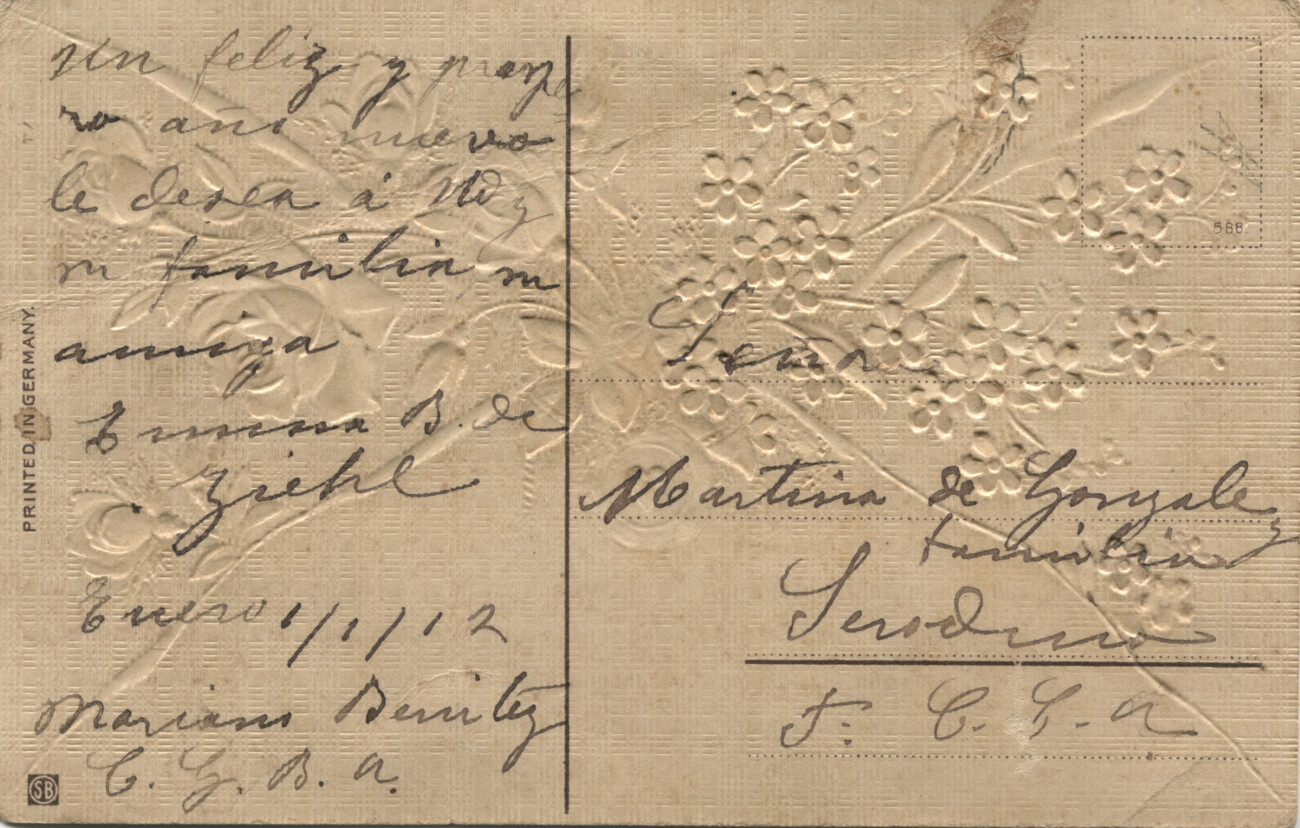 Un feliz y prospe
ro año nuevo
le desea á Vd y
su familia su
amiga
Emma B. de
Ziehl
Enero 1/1/12
Mariano Benitez
C. G. B. A.
PRINTED IN GERMANY.
SB
588.
Señora
Martina de Gonzalez
familia
Serodino
F. C. C. A